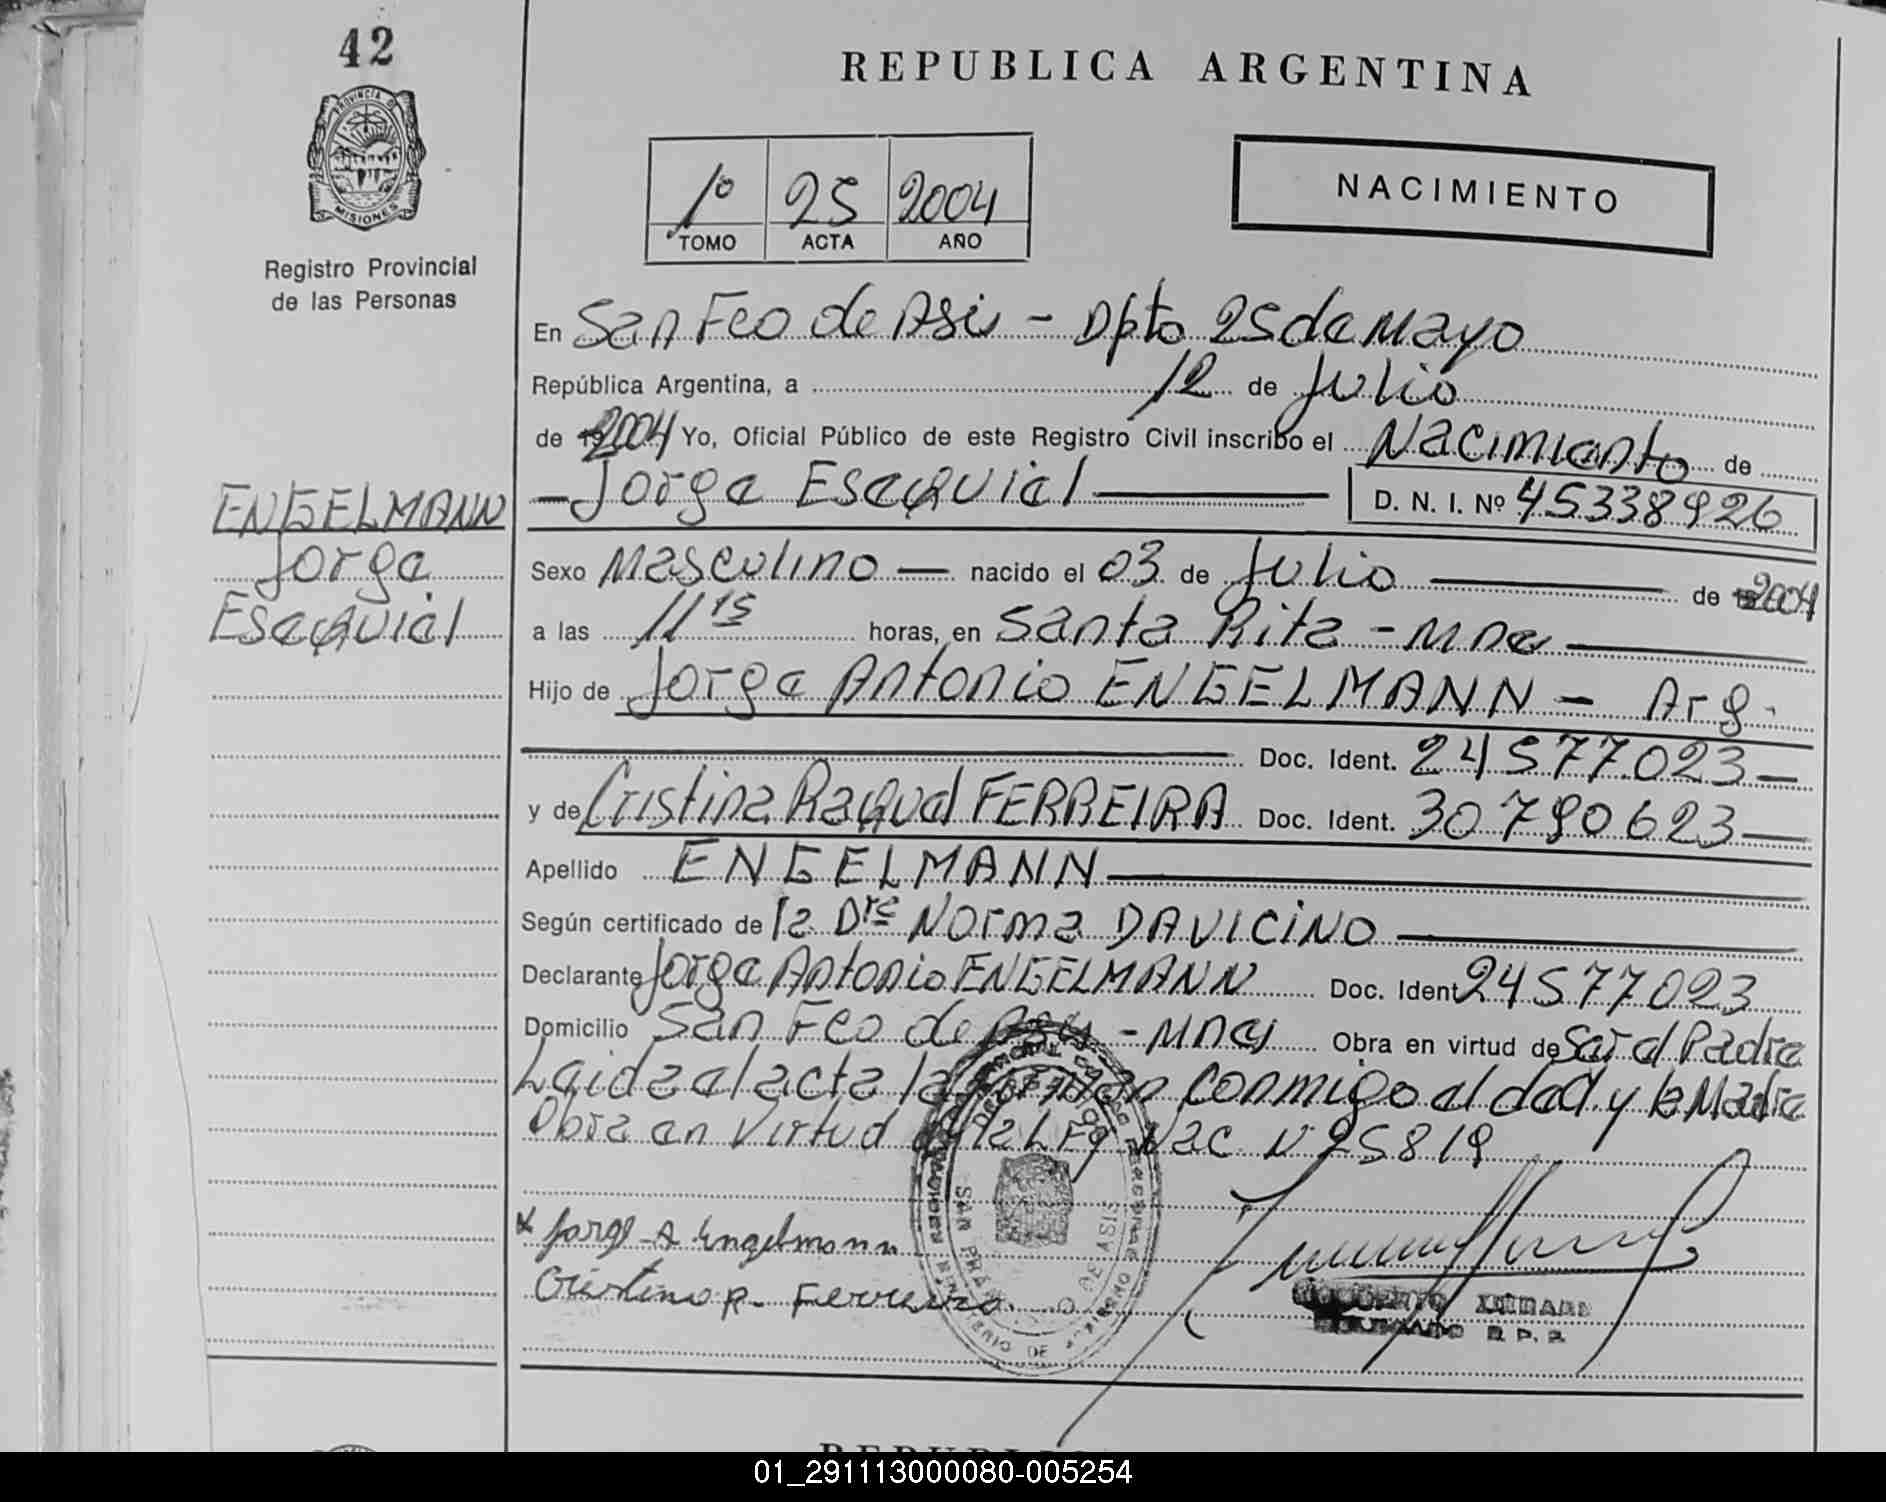 42
PROVINCIA DE
MISIONES
Registro Provincial
de las Personas
ENGELMANN
Jorge
Esequiel
REPUBLICA ARGENTINA
1º 25 2004
TOMO ACTA AÑO
NACIMIENTO
En San Fco de Asis - Dpto 25 de Mayo
República Argentina, a 12 de Julio
de 2004 Yo, Oficial Público de este Registro Civil inscribo el Nacimiento de
- Jorge Esequiel D. N. I. Nº 45338926
Sexo Masculino - nacido el 03 de Julio de 2004
a las 11 15 horas, en Santa Rita - Mnes
Hijo de Jorge Antonio ENGELMANN - Arg.
Doc. Ident. 24577023 -
y de Cristina Raquel FERREIRA Doc. Ident. 30790623
Apellido ENGELMANN
Según certificado de la Dra Norma DAVICINO
Declarante Jorge Antonio ENGELMANN Doc. Ident 24577023
Domicilio San Fco de Asis - Mnes Obra en virtud de Ser el Padre
Leida el acta la firman conmigo el decl y la Madre
Obra en Virtud de la Ley Nac N 25819
x Jorge A Engelmann
Cristina R. Ferreira
SAN FRANCISCO DE ASIS
R. P. P.
01_291113000080-005254